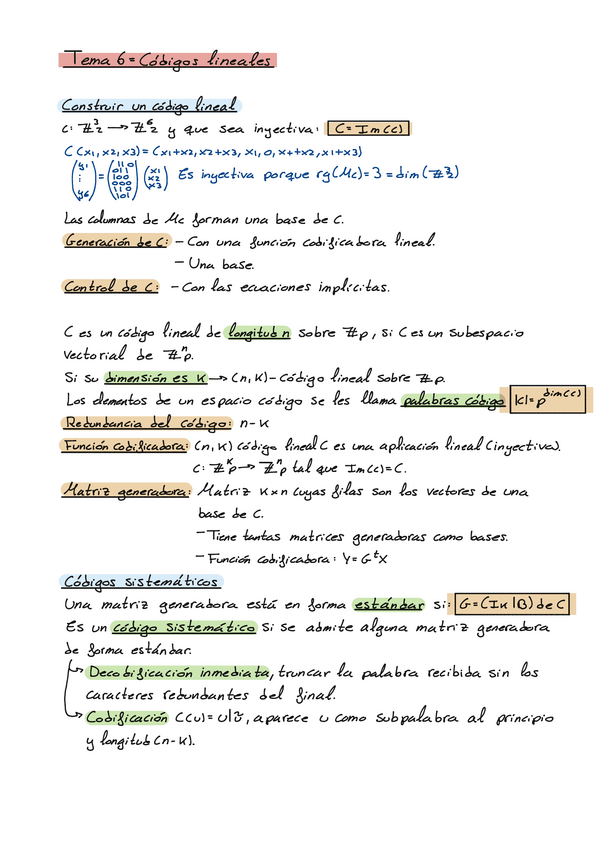 Tema 6 = Códigos lineales
Construir un código lineal
c: ℤ₂³ → ℤ₂⁶ y que sea inyectiva: C = Im(c)
C(x1, x2, x3) = (x1+x2, x2+x3, x1, 0, x++x2, x1+x3)
(y1 ⋮ y6) = (110 011 100 000 110 101) (x1 x2 x3) Es inyectiva porque rg(Mc) = 3 = dim(ℤ₂³)
Las columnas de Mc forman una base de C.
Generación de C: - Con una función codificadora lineal.
- Una base.
Control de C: - Con las ecuaciones implícitas.
C es un código lineal de longitud n sobre ℤp, si C es un subespacio
vectorial de ℤⁿp.
Si su dimensión es K → (n, K) - código lineal sobre ℤp.
Los elementos de un espacio código se les llama palabras código |C| = p^dim(C)
Redundancia del código: n-K
Función codificadora: (n, K) código lineal C es una aplicación lineal (inyectiva).
c: ℤᴷp → ℤⁿp tal que Im(c) = C.
Matriz generadora: Matriz K×n cuyas filas son los vectores de una
base de C.
- Tiene tantas matrices generadoras como bases.
- Función codificadora: Y = GᵗX
Códigos sistemáticos
Una matriz generadora está en forma estándar si: G = (Ik|B) de C
Es un código sistemático si se admite alguna matriz generadora
de forma estándar.
↳ Decodificación inmediata, truncar la palabra recibida sin los
caracteres redundantes del final.
↳ Codificación C(u) = u|ũ, aparece u como subpalabra al principio
y longitud (n-K).